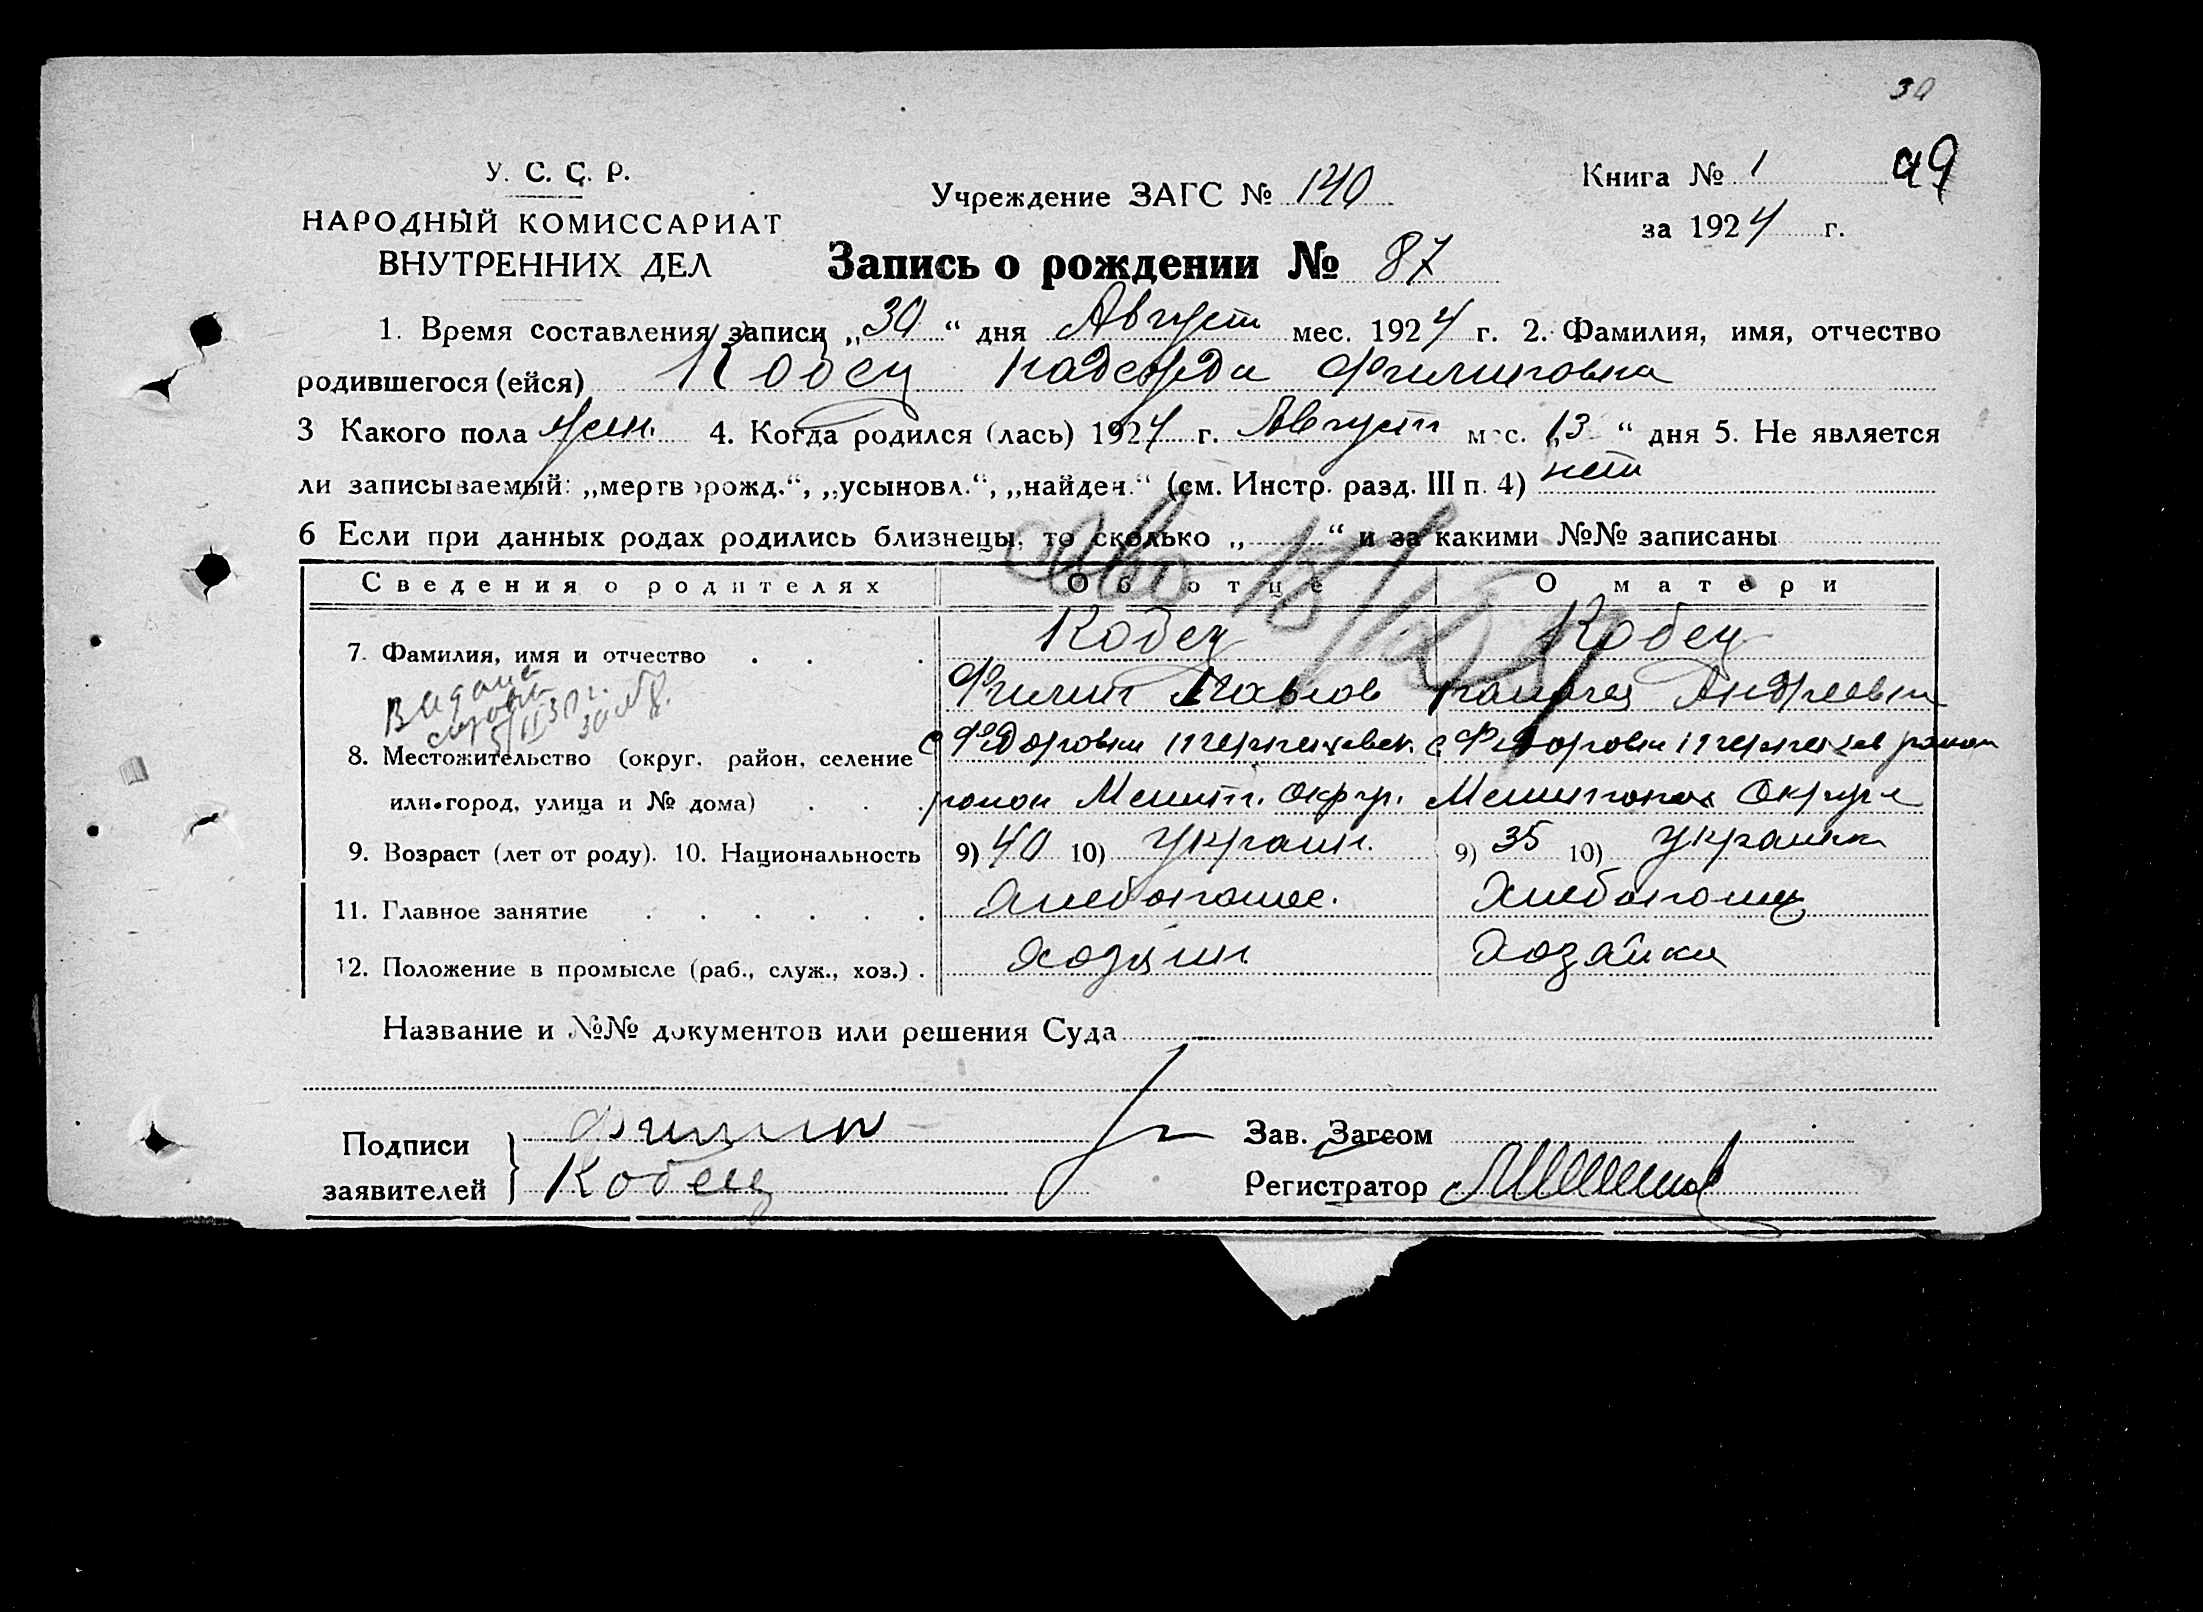 30
У. С. С. Р.
НАРОДНЫЙ КОМИССАРИАТ
ВНУТРЕННИХ ДЕЛ
Учреждение ЗАГС № 140
Книга № 1 49
за 1924 г.
Запись о рождении № 87
1. Время составления записи „30“ дня Август мес. 1924 г. 2. Фамилия, имя, отчество
родившегося (ейся) Кобец Надежда Филиповна
3 Какого пола жен. 4. Когда родился (лась) 1924 г. Август мес. „13“ дня 5. Не является
ли записываемый: „мертворожд.“, „усыновл.“, „найден.“ (см. Инстр. разд. III п. 4) нет
6 Если при данных родах родились близнецы, то сколько „ “ и за какими №№ записаны
Сведения о родителях Об отце О матери
7. Фамилия, имя и отчество Кобец Кобец
Филип Павлов Андреевна
Видана
8. Местожительство (округ, район, селение с Федоровки с Федоровки район
или город, улица и № дома) район Мелит. Округ. Мелитопол Округа
9. Возраст (лет от роду). 10. Национальность 9) 40 10) Украин. 9) 35 10) Украинка
11. Главное занятие Хлебопаш. Хлебопашец
12. Положение в промысле (раб., служ., хоз.) Хозяин Хозяйка
Название и №№ документов или решения Суда
Подписи заявителей } Филип
Кобец
Зав. Загсом
Регистратор